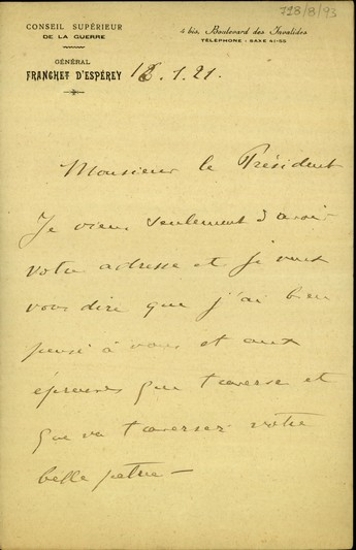 728/8/93
CONSEIL SUPÉRIEUR
DE LA GUERRE
4 bis, Boulevard des Invalides
TÉLÉPHONE - SAXE 41-55
GÉNÉRAL
FRANCHET D'ESPÉREY
18.1.21.
Monsieur le Président
Je viens seulement d'avoir
votre adresse et je veux
vous dire que j'ai bien
pensé à vous et aux
épreuves que traverse et
que va traverser votre
belle patrie —